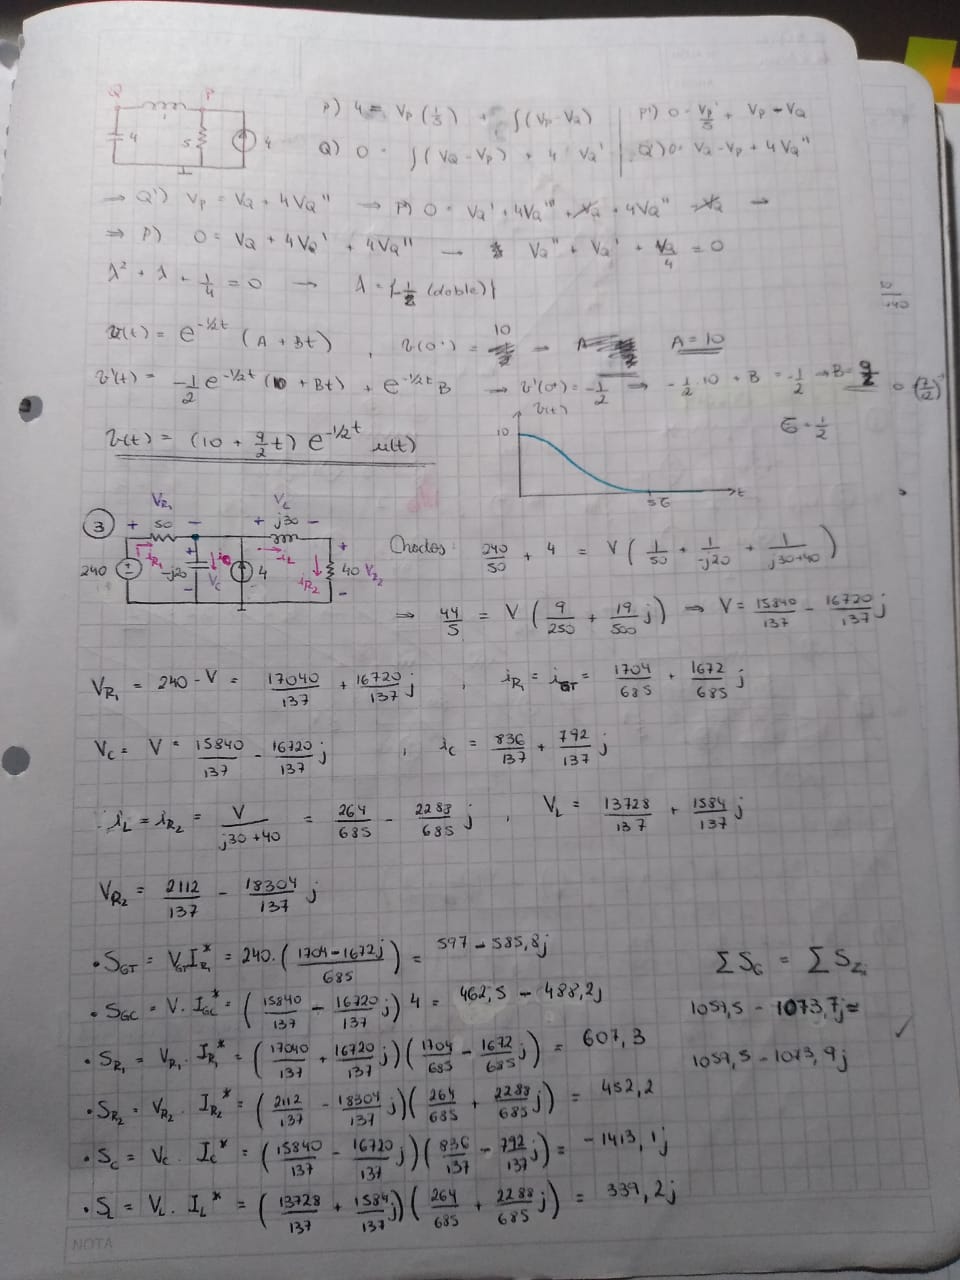 Q P
4 5 4
P) 4 = Vp (1/5) + ∫(Vp - VQ) | P') 0 = Vp'/5 + Vp - VQ
Q) 0 = ∫(VQ - Vp) + 4 VQ' | Q') 0 = VQ - Vp + 4VQ''
→ Q') Vp = VQ + 4VQ'' → P') 0 = VQ' + 4VQ''' + VQ + 4VQ'' - VQ →
⇒ P) 0 = VQ + 4VQ' + 4VQ'' → VQ'' + VQ' + VQ/4 = 0
λ² + λ + 1/4 = 0 → λ = {-1/2 (doble)}
v(t) = e^(-1/2t) (A + Bt) , v(0⁺) = 10 → A = 10
v'(t) = -1/2 e^(-1/2t) (10 + Bt) + e^(-1/2t) B → v'(0⁺) = -1/2 ⇒ -1/2·10 + B = -1/2 → B = 9/2
v(t) = (10 + 9/2 t) e^(-1/2t) u(t)
v(t) 10 5ζ t
ζ = 1/2
3 VR1 + 50 - VL + j30 -
240 iR1 -j20 VC 4 iL iR2 40 VR2
Onodos: 240/50 + 4 = V (1/50 + 1/-j20 + 1/j30+40)
⇒ 44/5 = V (9/250 + 19/500 j) ⇒ V = 15840/137 - 16720/137 j
VR1 = 240 - V = 17040/137 + 16720/137 j , iR1 = iGT = 1704/685 + 1672/685 j
VC = V = 15840/137 - 16720/137 j , iC = 836/137 + 792/137 j
iL = iR2 = V/j30+40 = 264/685 - 2288/685 j , VL = 13728/137 + 1584/137 j
VR2 = 2112/137 - 18304/137 j
• SGT = VGT IR1* = 240·(1704-1672j/685) = 597 - 585,8j
ΣSG = ΣSZi
• SGC = V· IGC* = (15840/137 - 16720/137 j) 4 = 462,5 - 488,2j
1059,5 - 1073,7j =
• SR1 = VR1· IR1* = (17040/137 + 16720/137 j)(1704/685 - 1672/685 j) = 607,3
1059,5 - 1073,9j ✓
• SR2 = VR2· IR2* = (2112/137 - 18304/137 j)(264/685 + 2288/685 j) = 452,2
• SC = VC· IC* = (15840/137 - 16720/137 j)(836/137 - 792/137 j) = -1413,1j
• SL = VL· IL* = (13728/137 + 1584/137 j)(264/685 + 2288/685 j) = 339,2j
NOTA